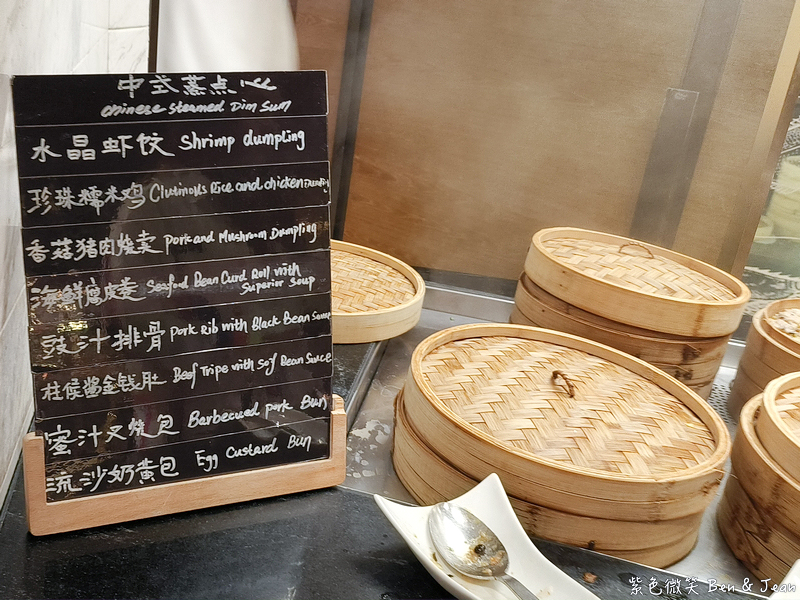 中式蒸点心
Chinese steamed Dim Sum
水晶虾饺 Shrimp dumpling
珍珠糯米鸡 Clutinous Rice and chicken
香菇猪肉烧卖 Pork and Mushroom Dumpling
海鲜腐皮卷 Seafood Bean Curd Roll with
Superior soup
豉汁排骨 Pork Rib with Black Bean Sauce
柱候酱金钱肚 Beef Tripe with Soy Bean Sauce
蜜汁叉烧包 Barbecued pork Bun
流沙奶黄包 Egg Custard Bun
紫色微笑 Ben & Jean